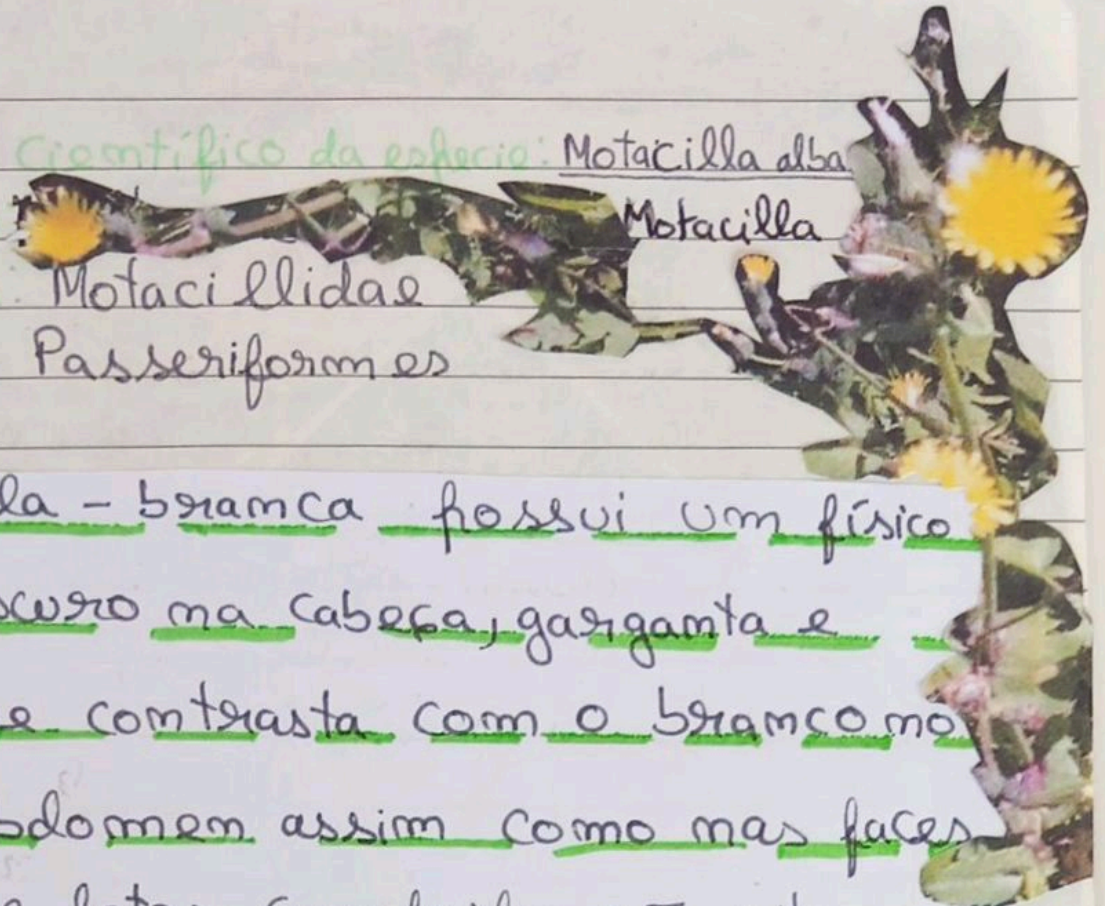 Científico da espécie: Motacilla alba
Motacilla
Motacillidae
Passeriformes
la - branca possui um físico
scuro na cabeça, garganta e
e contrasta com o branco no
bdomen assim como nas faces